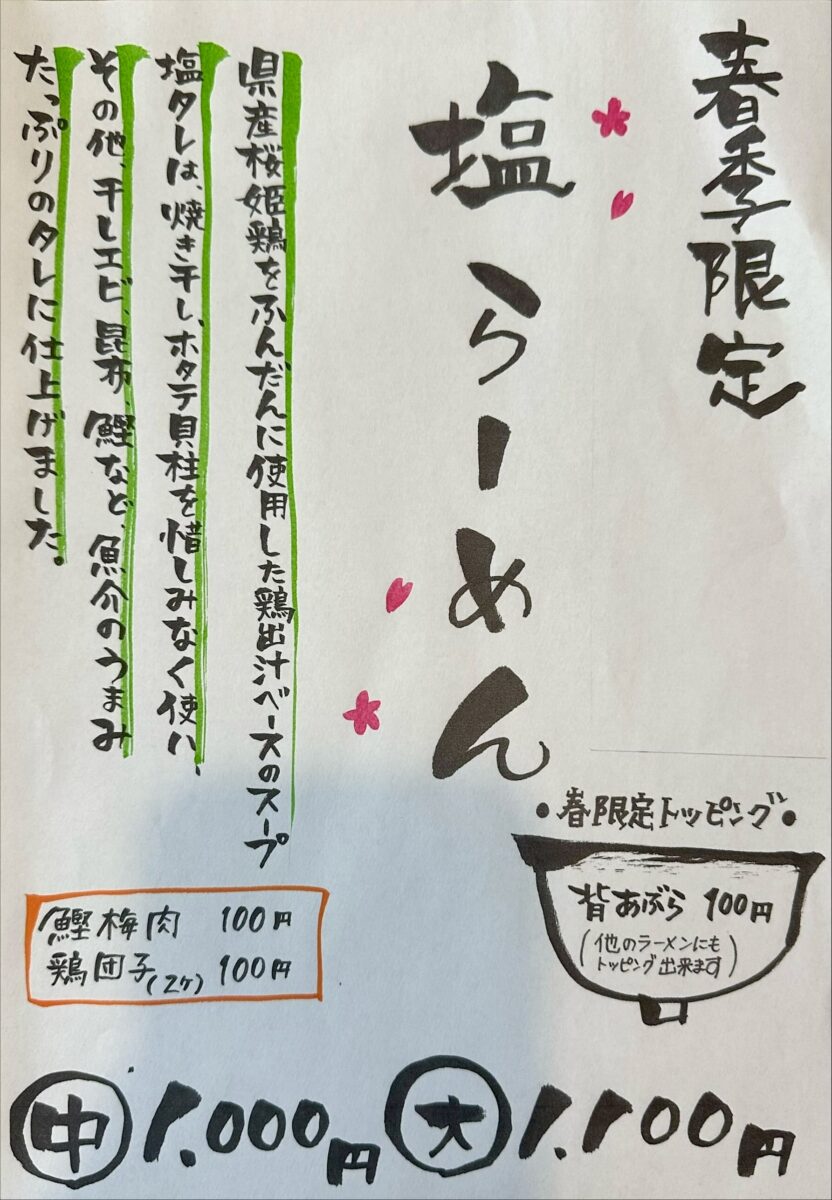 春季限定
塩らーめん
県産桜姫鶏をふんだんに使用した鶏出汁ベースのスープ
塩タレは、焼き干し、ホタテ貝柱を惜しみなく使い、
その他、干しエビ、昆布、鰹など、魚介のうまみ
たっぷりのタレに仕上げました。
•春限定トッピング•
背あぶら 100円
(他のラーメンにも
トッピング出来ます)
鰹梅肉 100円
鶏団子(2ヶ) 100円
中 1.000円 大 1.100円